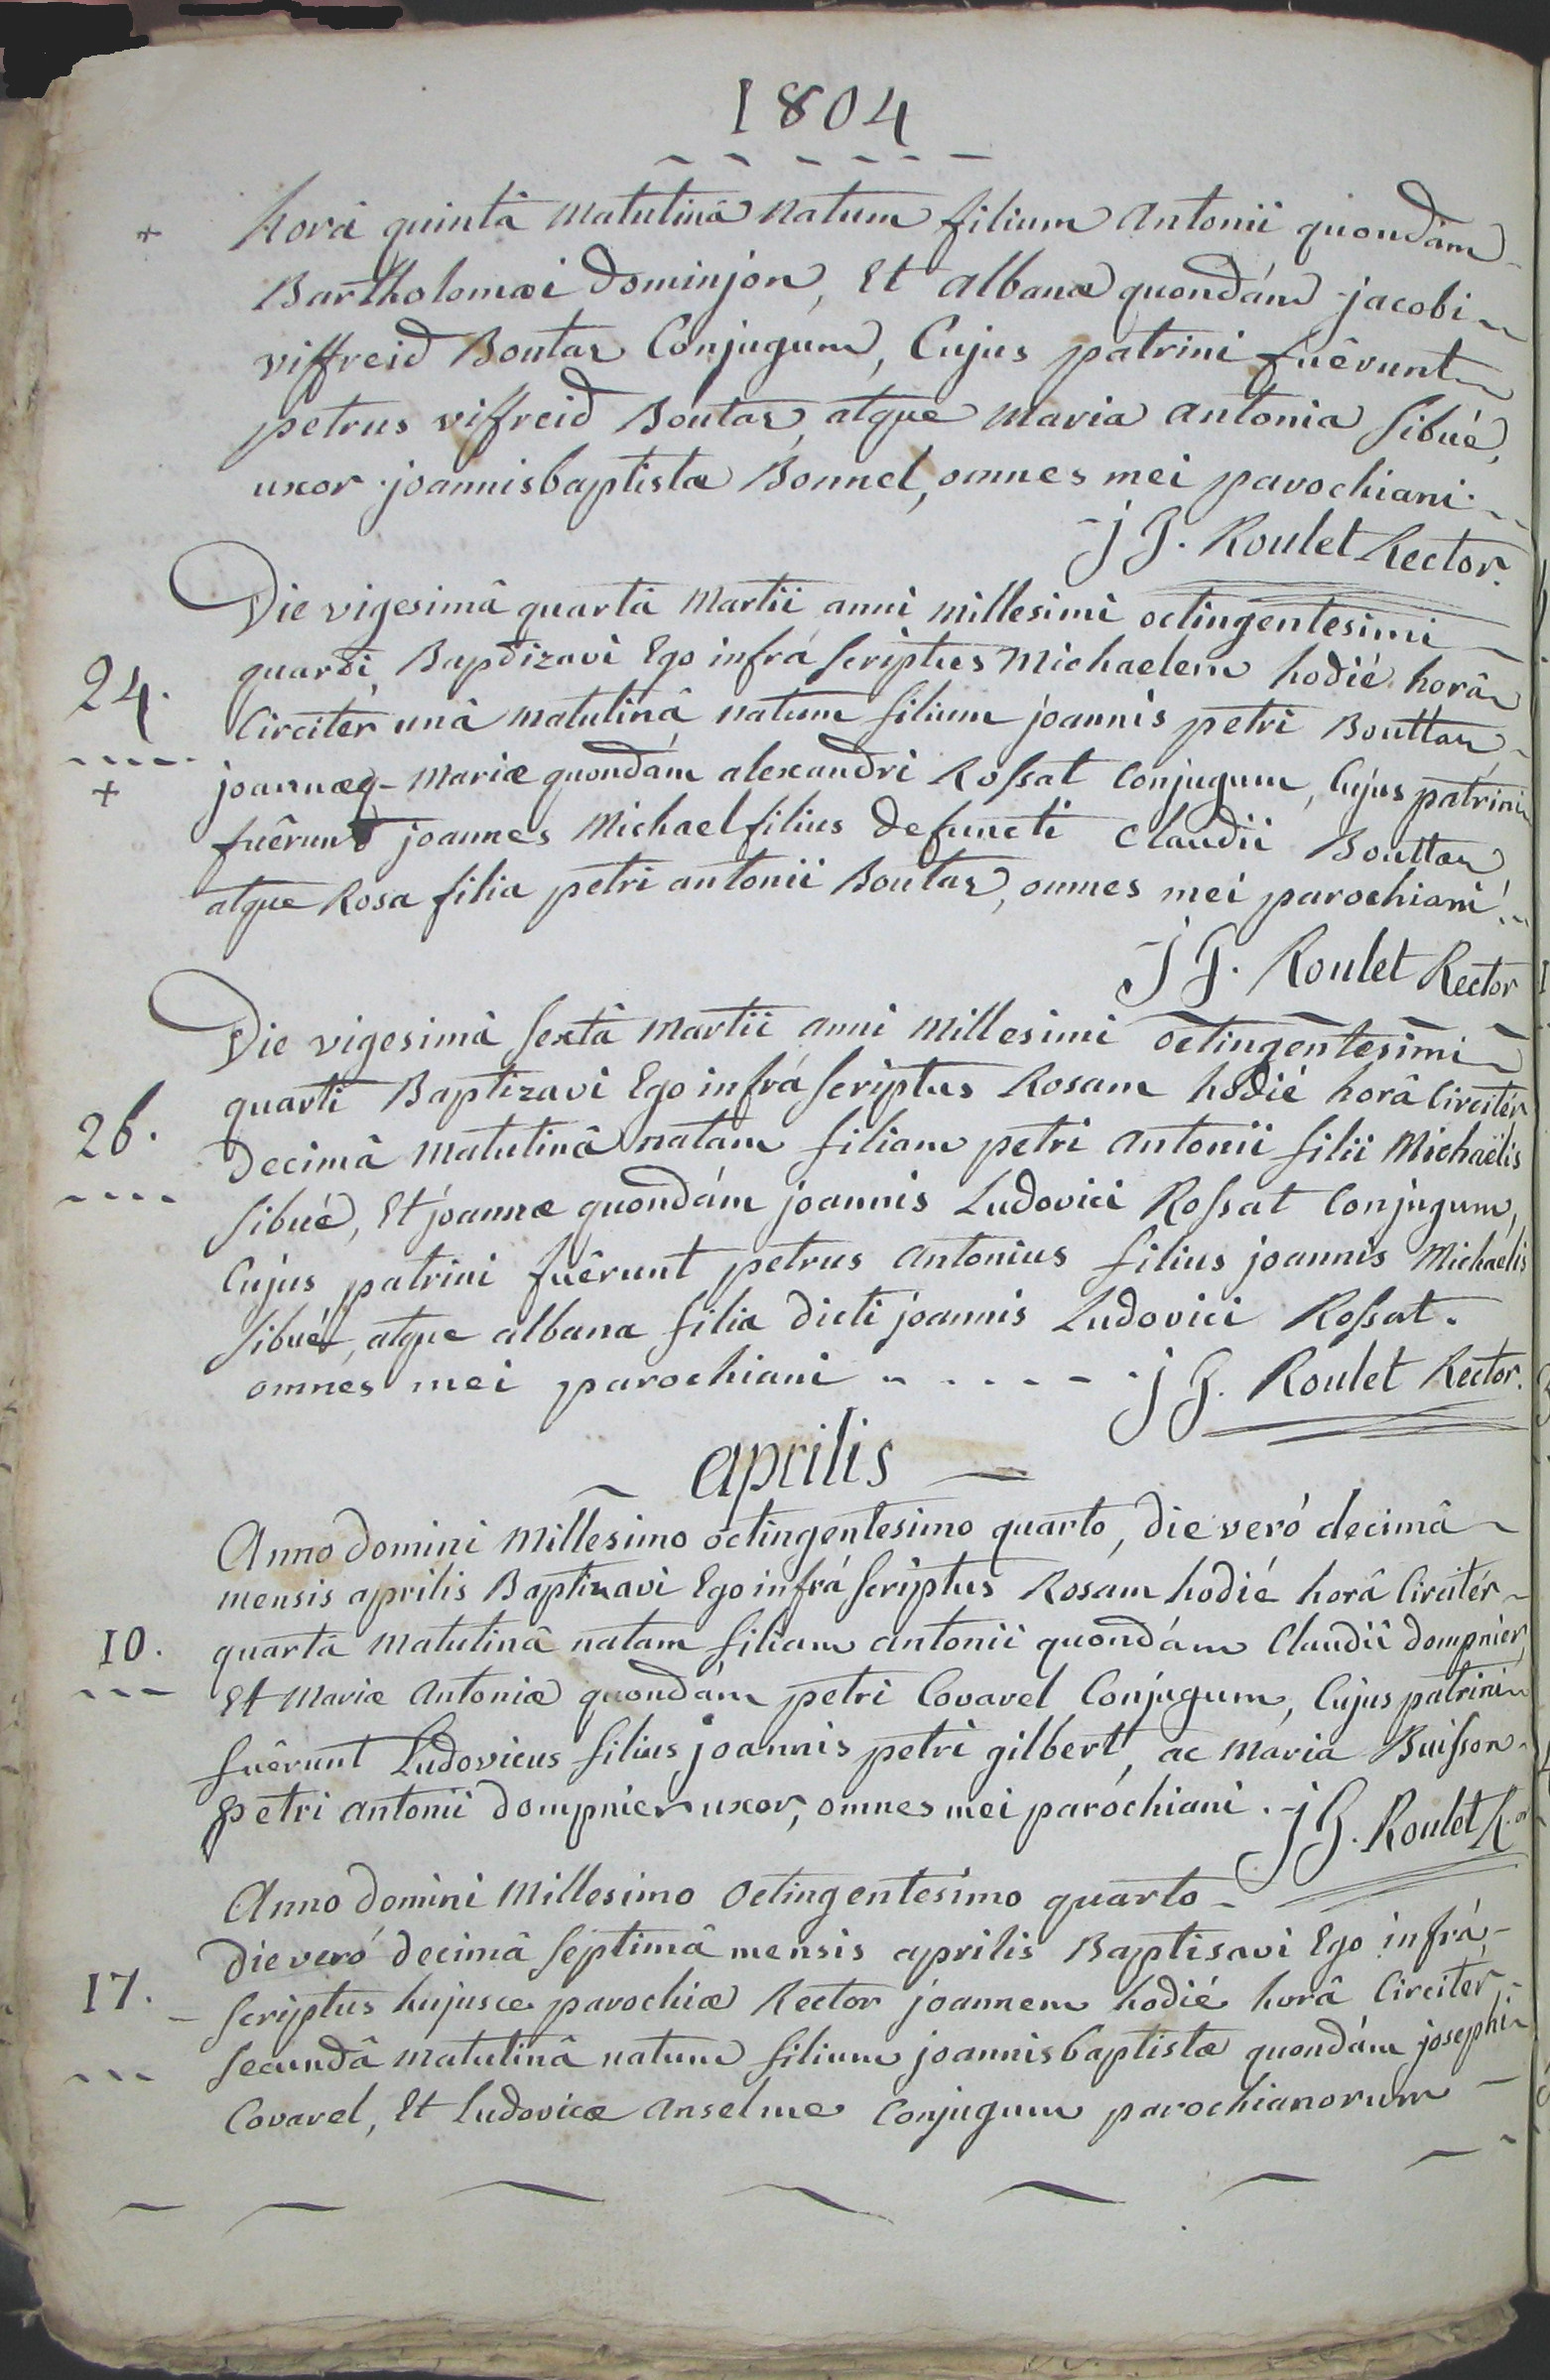 1804
+ horâ quintâ matutinâ natum filium antonii quondám
Bartholomæi Dominjon, Et albanæ quondám jacobi
viffreid Boutaz Conjugum, Cujus patrini fuêrunt
petrus viffreid Boutaz, atque maria antonia sibué,
uxor joannisbaptistæ Bonnel, omnes mei parochiani.
j G. Roulet Rector.
Die vigesimâ quartâ martii anni millesimi octingentesimi
24. quarti Baptizavi Ego infrá scriptus michaelem hodié horâ
Circitér unâ matutinâ natum filium joannis petri Bouttaz,
+ joannæq- mariæ quondám alexandri Rossat Conjugum, Cujus patrini
fuêrunt joannes michael filius defuncti Claudii Bouttaz,
atque Rosa filia petri antonii Boutaz, omnes mei parochiani.
J G. Roulet Rector
Die vigesimâ sextâ martii anni millesimi octingentesimi
quarti Baptizavi Ego infrá scriptus Rosam hodié horâ Circitér
26. decimâ matutinâ natam filiam petri antonii filii michaëlis
sibué, Et joannæ quondám joannis Ludovici Rossat Conjugum,
Cujus patrini fuêrunt petrus antonius filius joannis michaëlis
sibué, atque albana filia dicti joannis Ludovici Rossat.
omnes mei parochiani - - - - - j G. Roulet Rector.
aprilis
Anno domini millesimo octingentesimo quarto, die veró decimâ
mensis aprilis Baptizavi Ego infrá scriptus Rosam hodié horâ Circitér
10. quartâ matutinâ natam filiam antonii quondám Claudii dompnier,
Et mariæ antoniæ quondám petri Covarel Conjugum, Cujus patrini
fuêrunt Ludovicus filius joannis petri gilbert, ac maria Buisson
petri antonii dompnier uxor, omnes mei parochiani. j G. Roulet R.or
Anno domini millesimo octingentesimo quarto
die veró decimâ septimâ mensis aprilis Baptisavi Ego infrá-
17. scriptus hujusce parochiæ Rector joannem hodié horâ Circitér
secundâ matutinâ natum filium joannisbaptistæ quondám josephi
Covarel, Et Ludovicæ anselme Conjugum parochianorum